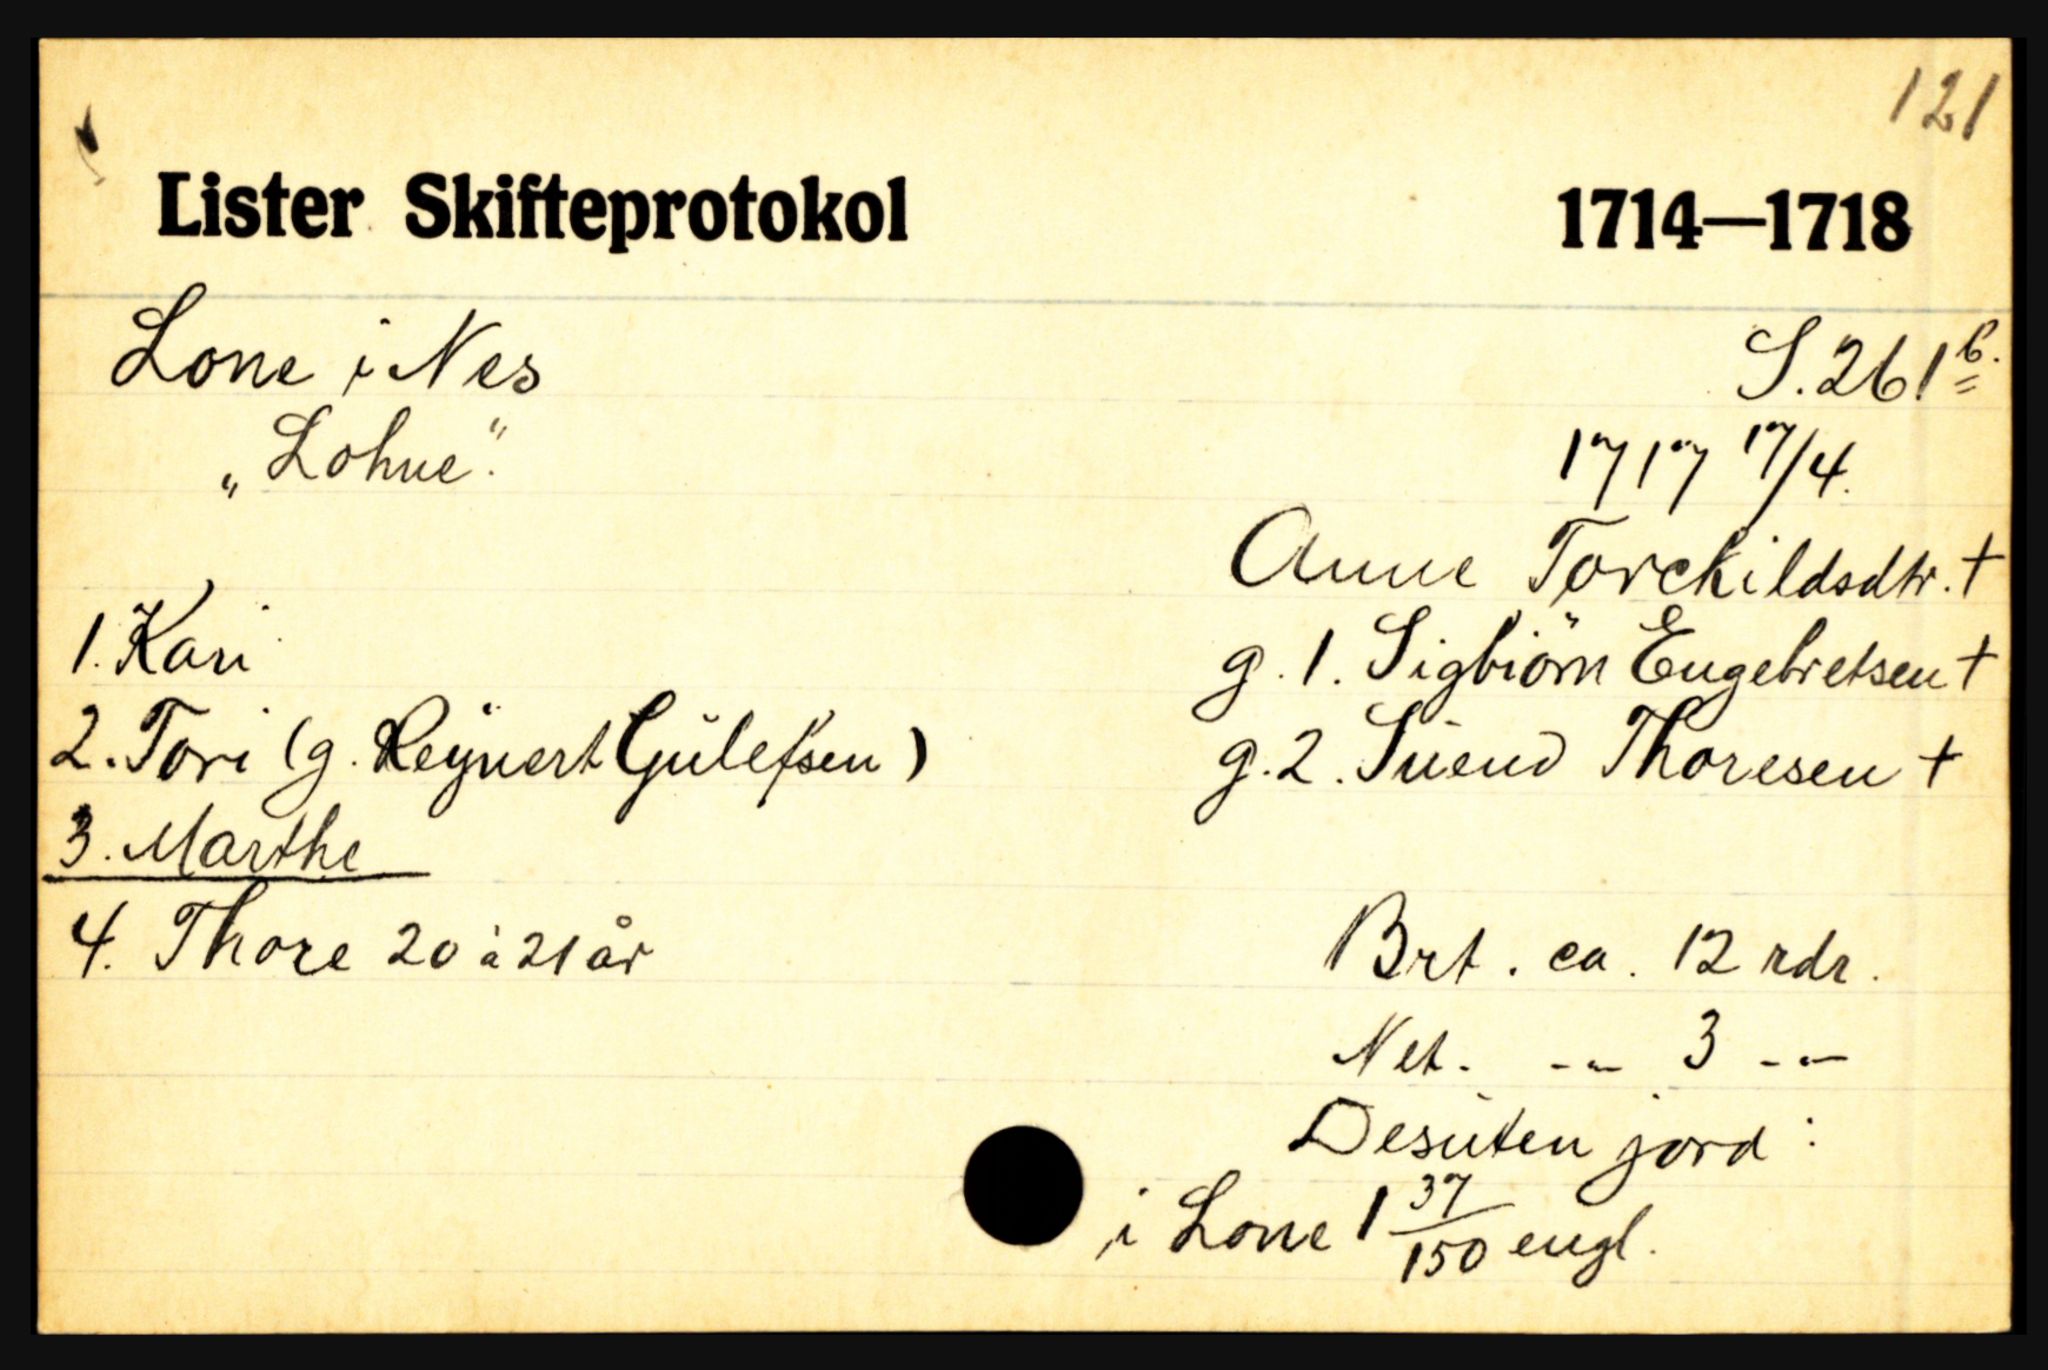 121
Lister Skifteprotokol 1714—1718
Lone i Nes S. 261 b.
„Lohne“. 1717 17/4.
Anne Torckildsdtr. †
1. Kari g. 1. Sigbiörn Engebretsen †
2. Tori (g. Reÿnert Gulefsen) g. 2. Suend Thoresen †
3. Marthe
4. Thore 20 à 21 år Brt. ca. 12 rdr.
Net. -„- 3 -„-
Desuten jord:
i Lone 1 37/150 engl.